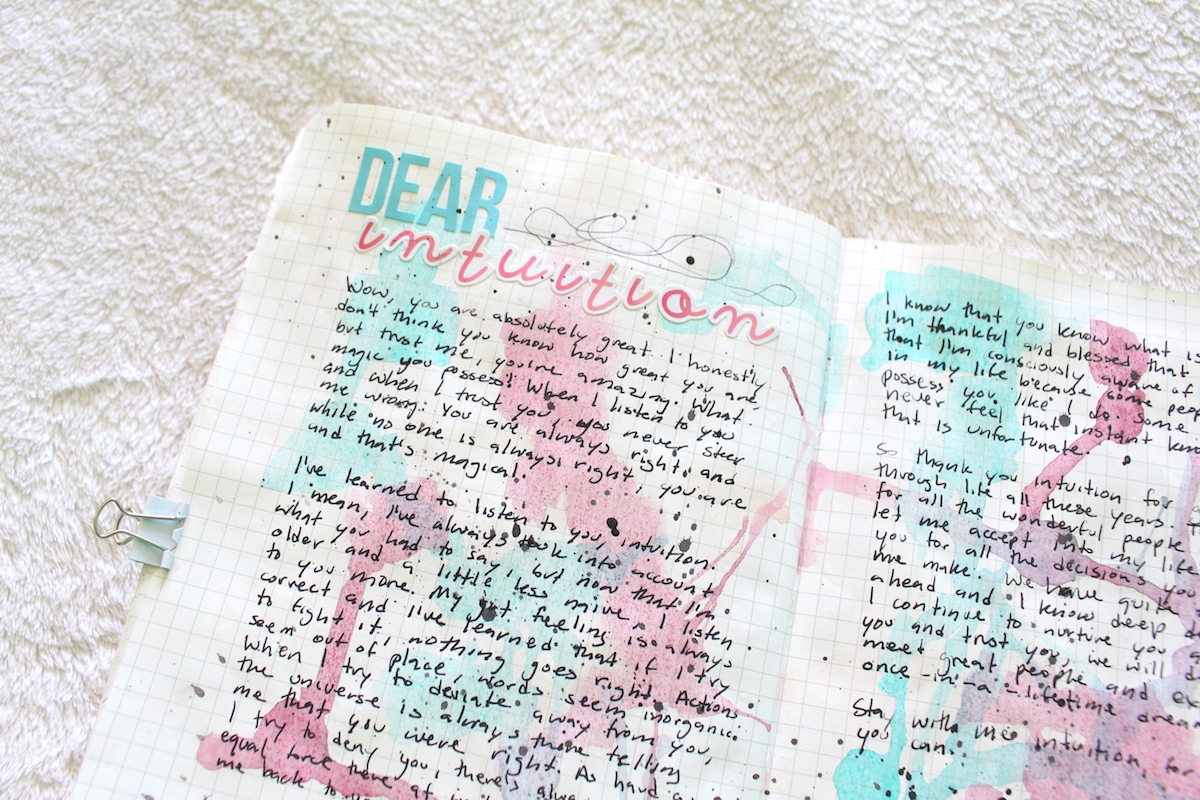 DEAR
intuition
Wow, you are absolutely great. I honestly
don't think you know how great you are,
but trust me, you're amazing. What
magic you possess! When I listen to you
and when I trust you, you never steer
me wrong. You are always right, and
while no one is always right, you are
and that's magical.
I've learned to listen to you, intuition.
I mean, I've always took into account
what you had to say, but now that I'm
older and a little less naive, I listen
to you more. My gut feeling is always
correct and I've learned that if I try
to fight it, nothing goes right. Actions
seem out of place, words seem inorganic.
When I try to deviate away from you,
the universe is always there telling
me that you were right. As hard as
I try to deny you, there's
equal force there
me back to
I know that you know what is
I'm thankful and blessed that
that I'm consciously aware of
in my life because some peop
possess you like I do. Some
never feel that instant know
that is unfortunate.
So thank you intuition for
through life all these years. T
for all the wonderful people
let me accept into my life
you for all the decisions you
me make. We have quite
ahead and I know deep d
I continue to nurture you a
you and trust you, we will d
meet great people and ex
once-in-a-lifetime drea
Stay with me intuition, for
you can.